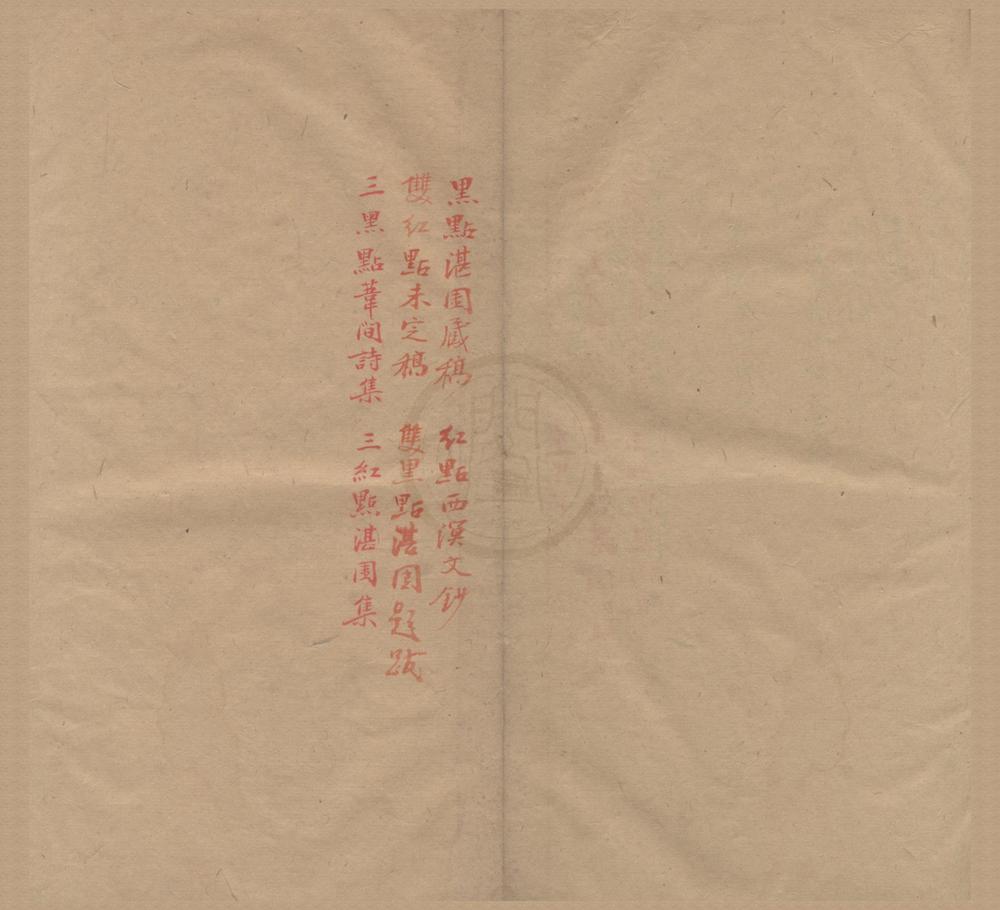 黑點湛園藏稿　紅點西溟文鈔
雙紅點未定稿　雙黑點湛園題跋
三黑點葦間詩集　三紅點湛園集